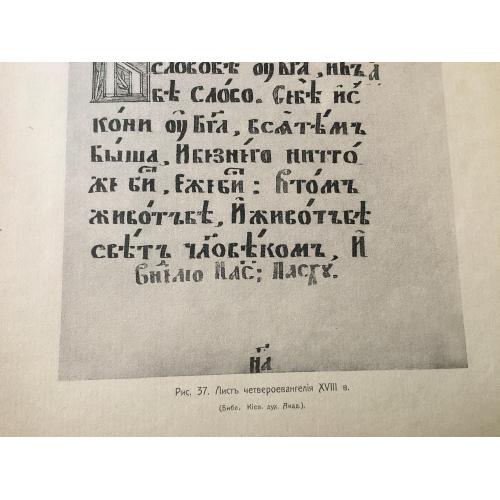 слово бѣ ѹ бг҃а , и бг҃ъ
бѣ сло́во . Се бѣ и҆с
кони ѹ҆ бг҃а , всѧ̀ тѣ́мъ
бы́ша , И безнего̀ ничто́
же бы́ , Еже бы́ : Втомъ
живо́тъ бѣ̀ , И҆ живо́тъ бѣ
свѣ́тъ чл҃овѣ́комъ , И҆
Рис. 37. Листъ четвероевангелія XVIII в.
(Библ. Кіев. дух. Акад.).